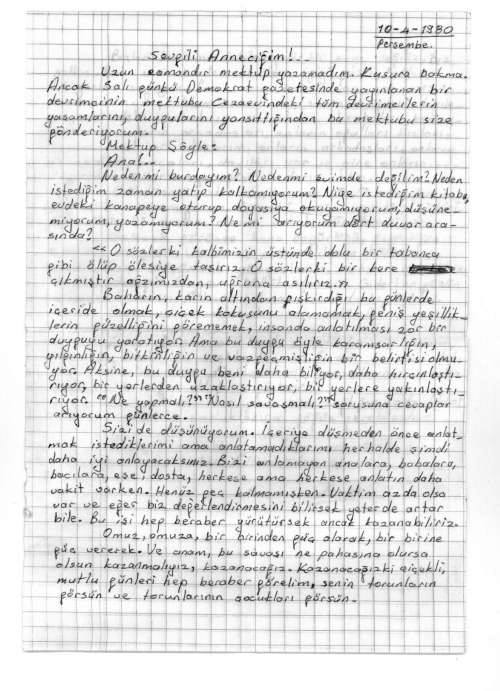 10-4-1980
Perşembe.
Sevgili Anneciğim!..
Uzun zamandır mektup yazamadım. Kusura bakma.
Ancak Salı günkü Demokrat gazetesinde yayınlanan bir
devrimcinin mektubu Cezaevindeki tüm devrimcilerin
yaşamlarını, duygularını yansıttığından bu mektubu size
gönderiyorum.
Mektup Şöyle:
Ana!..
Neden mi burdayım? Neden mi evimde değilim? Neden
istediğim zaman yatıp kalkamıyorum? Niye istediğim kitabı,
evdeki kanapeye oturup doyasıya okuyamıyorum, düşüne-
miyorum, yazamıyorum? Ne mi arıyorum dört duvar ara-
sında?
"O sözler ki kalbimizin üstünde dolu bir tabanca
gibi ölüp ölesiye taşırız. O sözler ki bir kere
çıkmıştır ağzımızdan, uğruna asılırız."
Baharın, karın altından fışkırdığı bu günlerde
içeride olmak, çiçek kokusunu alamamak, geniş yeşillik-
lerin güzelliğini görememek, insanda anlatılması zor bir
duyguyu yaratıyor. Ama bu duygu öyle karamsarlığın,
yılgınlığın, bitkinliğin ve vazgeçmişliğin bir belirtisi olmu-
yor. Aksine, bu duygu beni daha biliyor, daha hırçınlaştı-
rıyor, bir yerlerden uzaklaştırıyor, bir yerlere yakınlaştı-
rıyor. "Ne yapmalı?" "Nasıl savaşmalı?" sorusuna cevaplar
arıyorum günlerce.
Sizi de düşünüyorum. İçeriye düşmeden önce anlat-
mak istediklerimi ama anlatamadıklarımı herhalde şimdi
daha iyi anlayacaksınız. Bizi anlamayan analara, babalara,
bacılara, eşe, dosta, herkese ama herkese anlatın daha
vakit varken. Henüz geç kalmamışken. Vaktim azda olsa
var ve eğer biz değerlendirmesini bilirsek yeterde artar
bile. Bu işi hep beraber yürütürsek ancak kazanabiliriz.
Omuz, omuza, bir birinden güç alarak, bir birine
güç vererek. Ve anam, bu savaşı ne pahasına olursa
olsun kazanmalıyız, kazanacağız. Kazanacağızki çiçekli,
mutlu günleri hep beraber görelim, senin torunların
görsün ve torunlarının çocukları görsün.